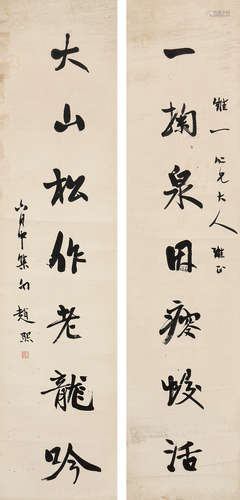 一仁兄大人雅正
一掬泉因瘦蛟活
大山松作老龍吟
六月中集句 趙熙